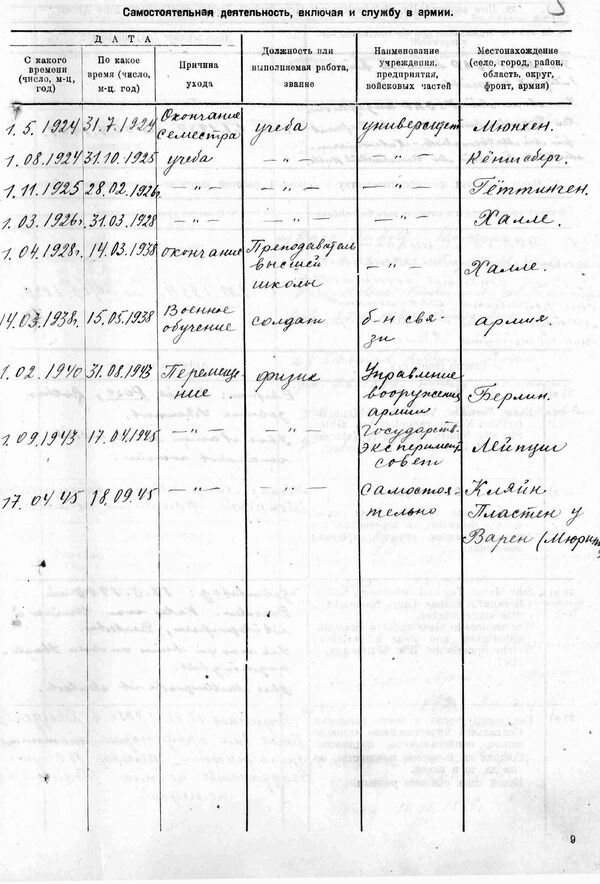 Самостоятельная деятельность, включая и службу в армии.
ДАТА
С какого времени (число, м-ц, год)
По какое время (число, м-ц, год)
Причина ухода
Должность или выполняемая работа, звание
Наименование учреждения, предприятия, войсковых частей
Местонахождение (село, город, район, область, округ, фронт, армия)
1. 5. 1924 31. 7. 1924 Окончание семестра учеба университет Мюнхен.
1. 08. 1924 31. 10. 1925 учеба — " — — " — Кёнигсберг.
1. 11. 1925 28. 02. 1926г. — " — — " — — " — Гёттинген.
1. 03. 1926г. 31. 03. 1928 — " — — " — — " — Халле.
1. 04. 1928г. 14. 03. 1938 окончание Преподаватель высшей школы — " — Халле.
14. 03. 1938г. 15. 05. 1938 Военное обучение солдат б-н связи армия.
1. 02. 1940 31. 08. 1943 Перемещение физик Управление вооружения армии Берлин.
1. 09. 1943 17. 04. 1945 — " — — " — Государств. эксперимент. совет Лейпциг
17. 04. 45 18. 09. 45 — " — — " — самостоятельно Кляйн Пластен у Варен (Мюриц)
9